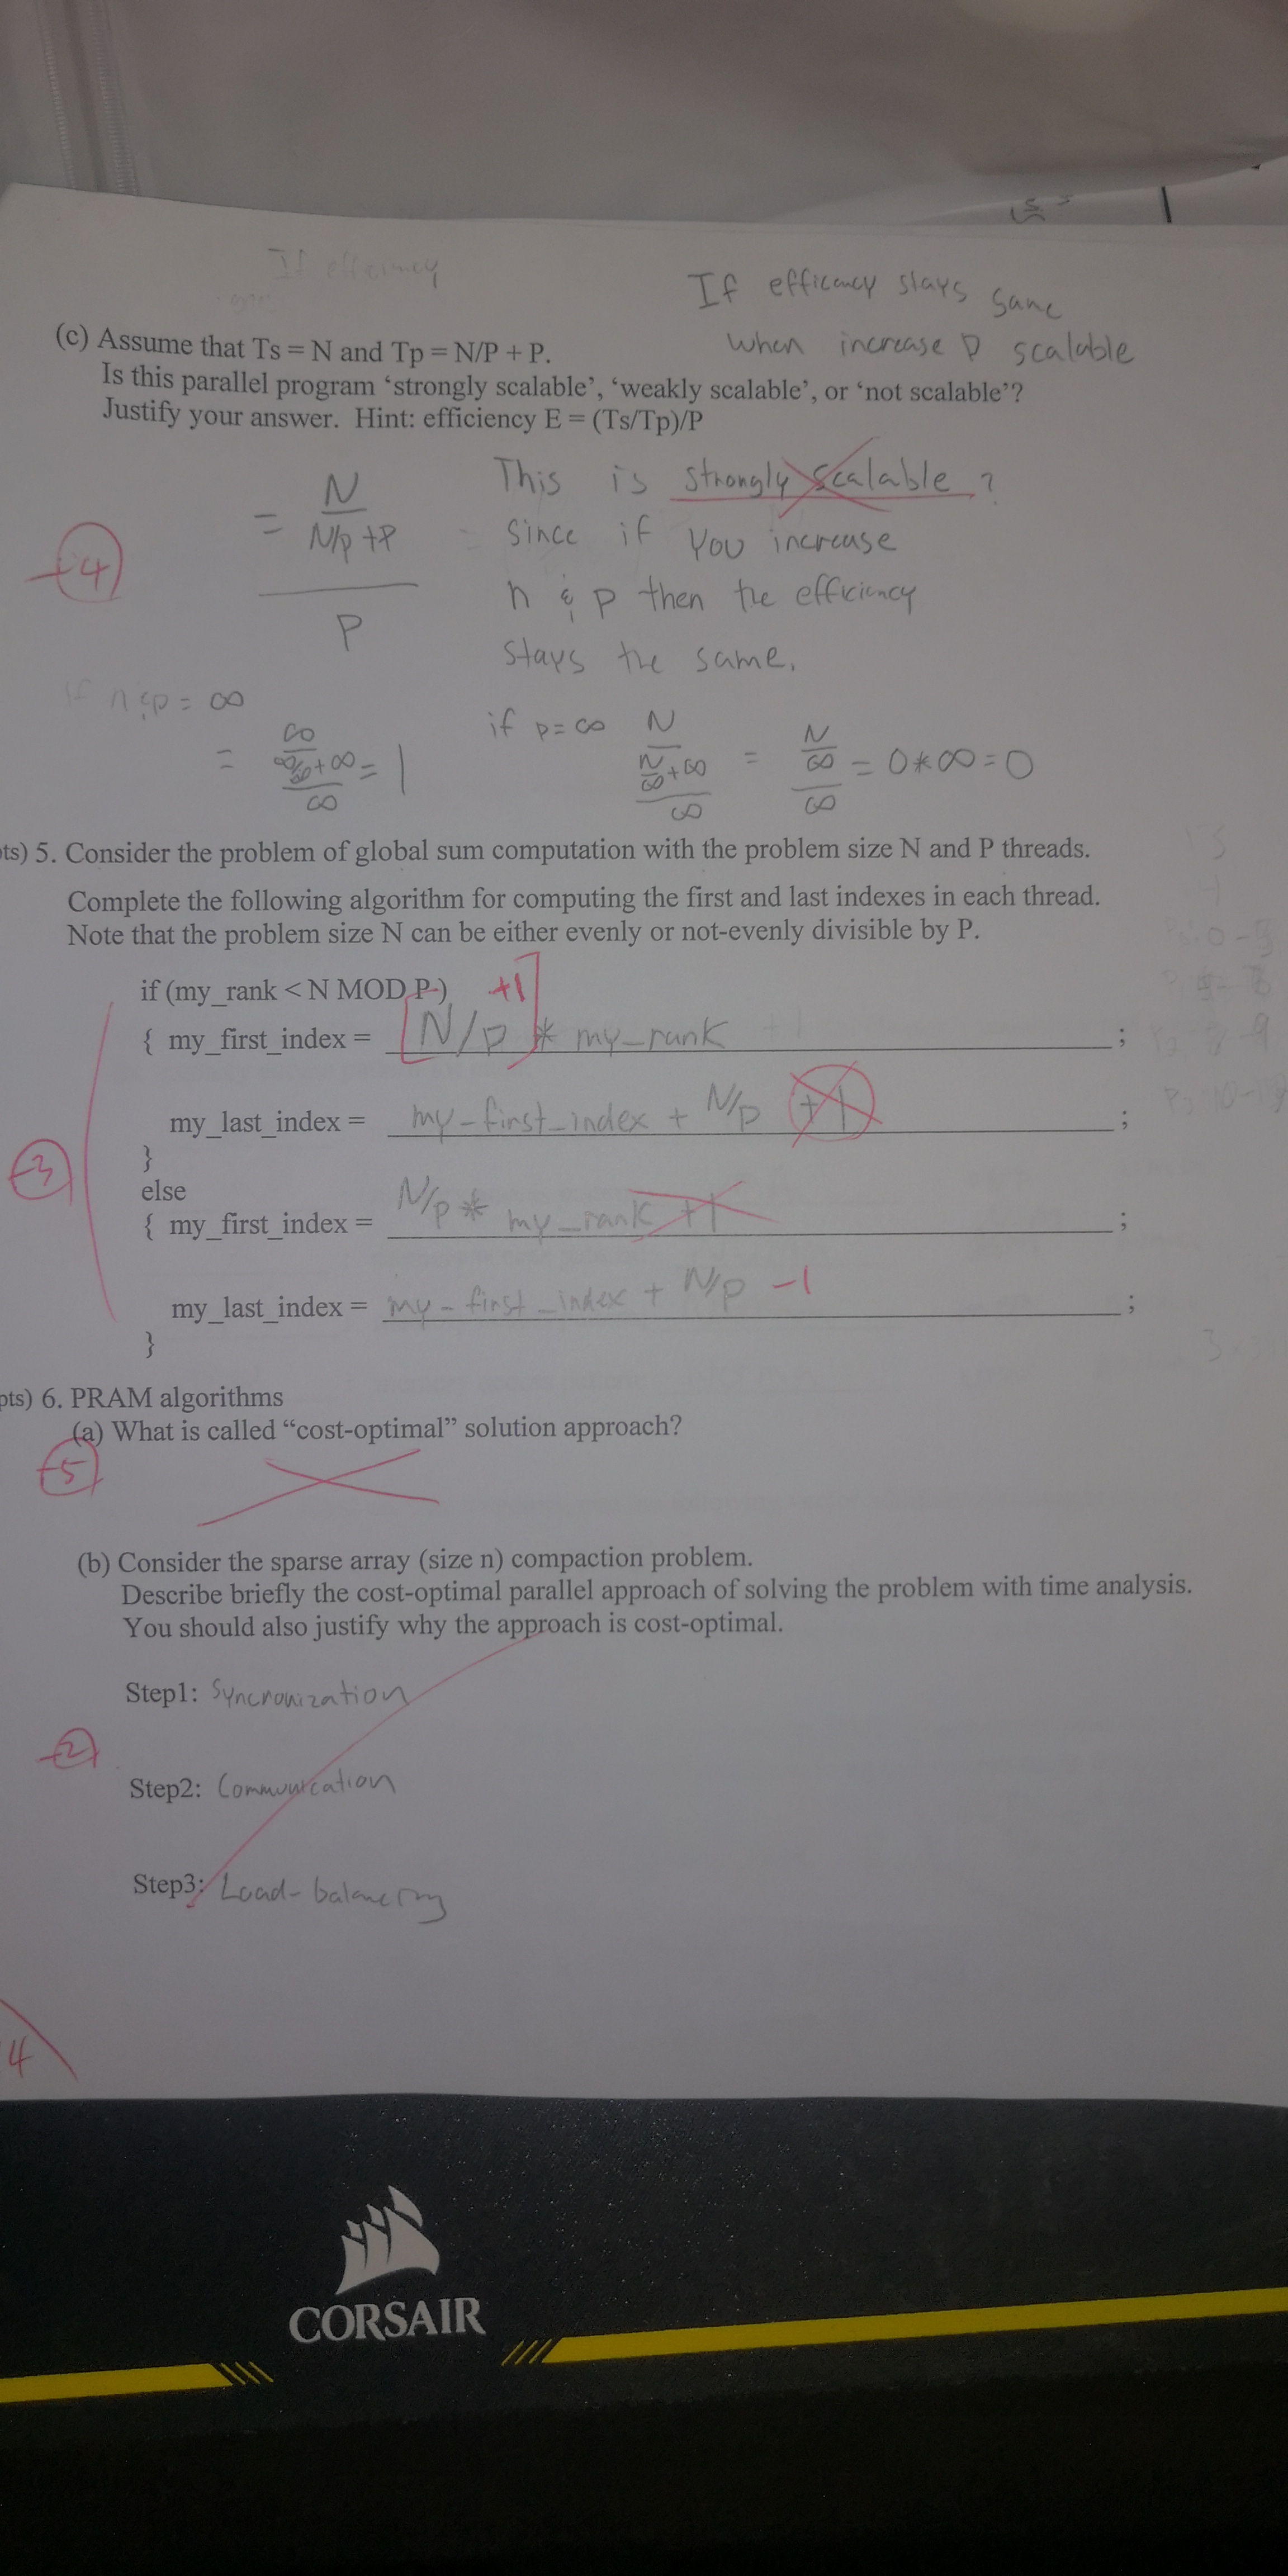 If efficency
If efficency stays same
when increase P scalable
(c) Assume that Ts = N and Tp = N/P + P.
Is this parallel program ‘strongly scalable’, ‘weakly scalable’, or ‘not scalable’?
Justify your answer. Hint: efficiency E = (Ts/Tp)/P
= N
N/p +P
P
This is strongly scalable ?
since if you increase
n & p then the efficiency
stays the same.
-4
if n & p = ∞
= ∞
∞/∞ + ∞ = 1
∞
if p = ∞ N
N/∞ + ∞
∞
= N/∞
∞
= 0 * ∞ = 0
ts) 5. Consider the problem of global sum computation with the problem size N and P threads.
Complete the following algorithm for computing the first and last indexes in each thread.
Note that the problem size N can be either evenly or not-evenly divisible by P.
if (my_rank < N MOD P) +1
{ my_first_index = [N/p] * my_rank ;
my_last_index = my-first_index + N/p +1 ;
}
-3
else
{ my_first_index = N/p * my_rank +1 ;
my_last_index = my-first_index + N/p -1 ;
}
pts) 6. PRAM algorithms
(a) What is called “cost-optimal” solution approach?
-5
(b) Consider the sparse array (size n) compaction problem.
Describe briefly the cost-optimal parallel approach of solving the problem with time analysis.
You should also justify why the approach is cost-optimal.
Step1: Syncronization
-2
Step2: Communication
Step3: Load-balancing
4
CORSAIR